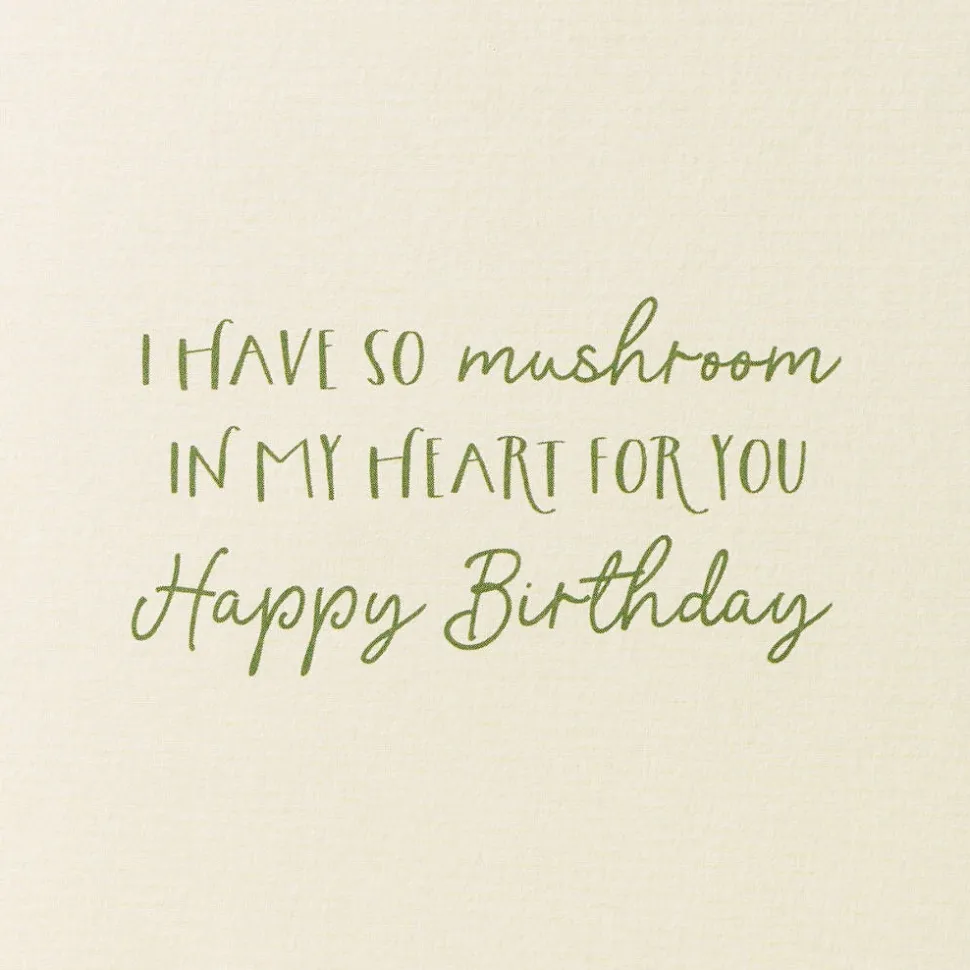 I HAVE SO mushroom
IN MY HEART FOR YOU
Happy Birthday